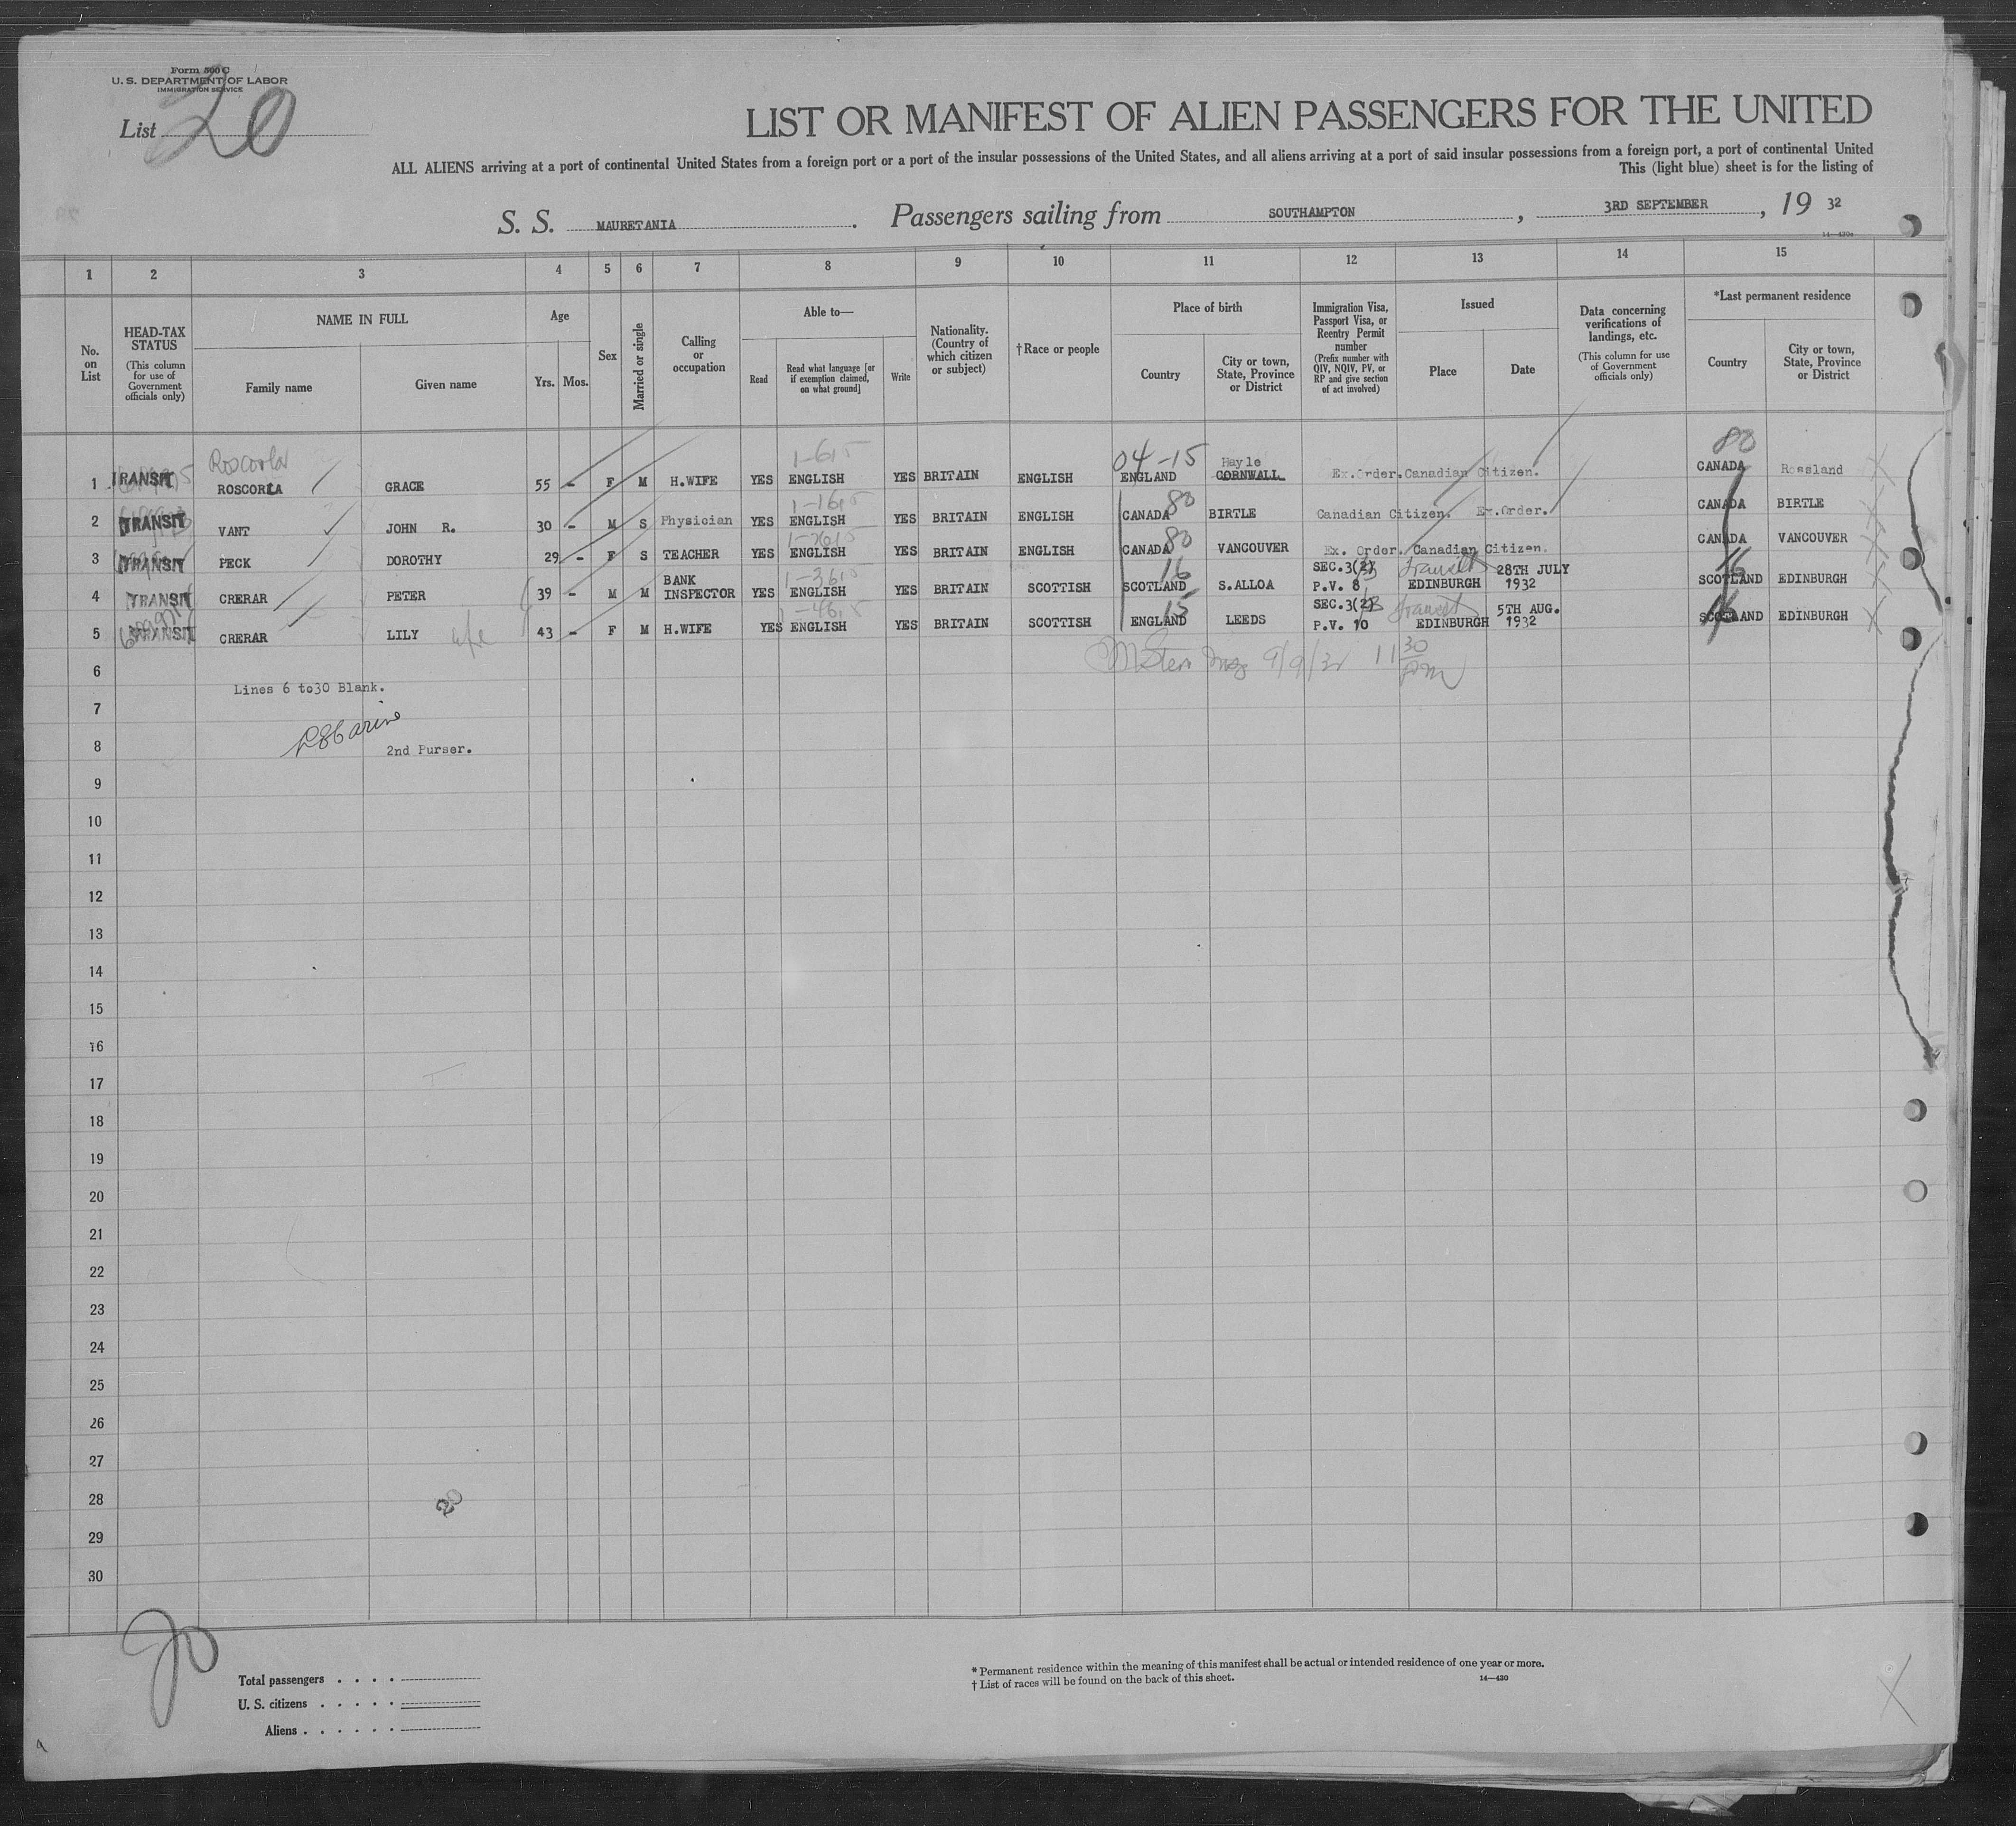 Form 500 C
U. S. DEPARTMENT OF LABOR
IMMIGRATION SERVICE
List 20
LIST OR MANIFEST OF ALIEN PASSENGERS FOR THE UNITED
ALL ALIENS arriving at a port of continental United States from a foreign port or a port of the insular possessions of the United States, and all aliens arriving at a port of said insular possessions from a foreign port, a port of continental United
This (light blue) sheet is for the listing of
S. S. MAURETANIA. Passengers sailing from SOUTHAMPTON, 3RD SEPTEMBER, 19 32
1 2 3 4 5 6 7 8 9 10 11 12 13 14 15
No. on List
HEAD-TAX STATUS
(This column for use of Government officials only)
NAME IN FULL
Family name
Given name
Age
Yrs. Mos.
Sex
Married or single
Calling or occupation
Able to—
Read
Read what language [or if exemption claimed, on what ground]
Write
Nationality. (Country of which citizen or subject)
†Race or people
Place of birth
Country
City or town, State, Province or District
Immigration Visa, Passport Visa, or Reentry Permit number
(Prefix number with QIV, NQIV, PV, or RP and give section of act involved)
Issued
Place
Date
Data concerning verifications of landings, etc.
(This column for use of Government officials only)
*Last permanent residence
Country
City or town, State, Province or District
Roscorla 04-15 Hayle 80
1 TRANSIT ROSCORLA GRACE 55 - F M H.WIFE YES ENGLISH YES BRITAIN ENGLISH ENGLAND CORNWALL Ex.Order.Canadian Citizen. CANADA Rossland
2 TRANSIT VANT JOHN R. 30 - M S Physician YES ENGLISH YES BRITAIN ENGLISH CANADA 80 BIRTLE Canadian Citizen. Ex.Order. CANADA BIRTLE
3 TRANSIT PECK DOROTHY 29 - F S TEACHER YES ENGLISH YES BRITAIN ENGLISH CANADA 80 VANCOUVER Ex. Order. Canadian Citizen. CANADA VANCOUVER
BANK 16 SEC.3(2) Transit 28TH JULY 16
4 TRANSIT CRERAR PETER 39 - M M INSPECTOR YES ENGLISH YES BRITAIN SCOTTISH SCOTLAND S.ALLOA P.V. 8 EDINBURGH 1932 SCOTLAND EDINBURGH
15 SEC.3(2) Transit 5TH AUG.
5 TRANSIT CRERAR LILY wife 43 - F M H.WIFE YES ENGLISH YES BRITAIN SCOTTISH ENGLAND LEEDS P.V. 10 EDINBURGH 1932 SCOTLAND EDINBURGH
9/9/32 11 30 PM
6
Lines 6 to30 Blank.
7
8 2nd Purser.
9
10
11
12
13
14
15
16
17
18
19
20
21
22
23
24
25
26
27
28
29
30
20
Total passengers . . . .
U. S. citizens . . . . .
Aliens . . . . . .
* Permanent residence within the meaning of this manifest shall be actual or intended residence of one year or more.
† List of races will be found on the back of this sheet.
14—430